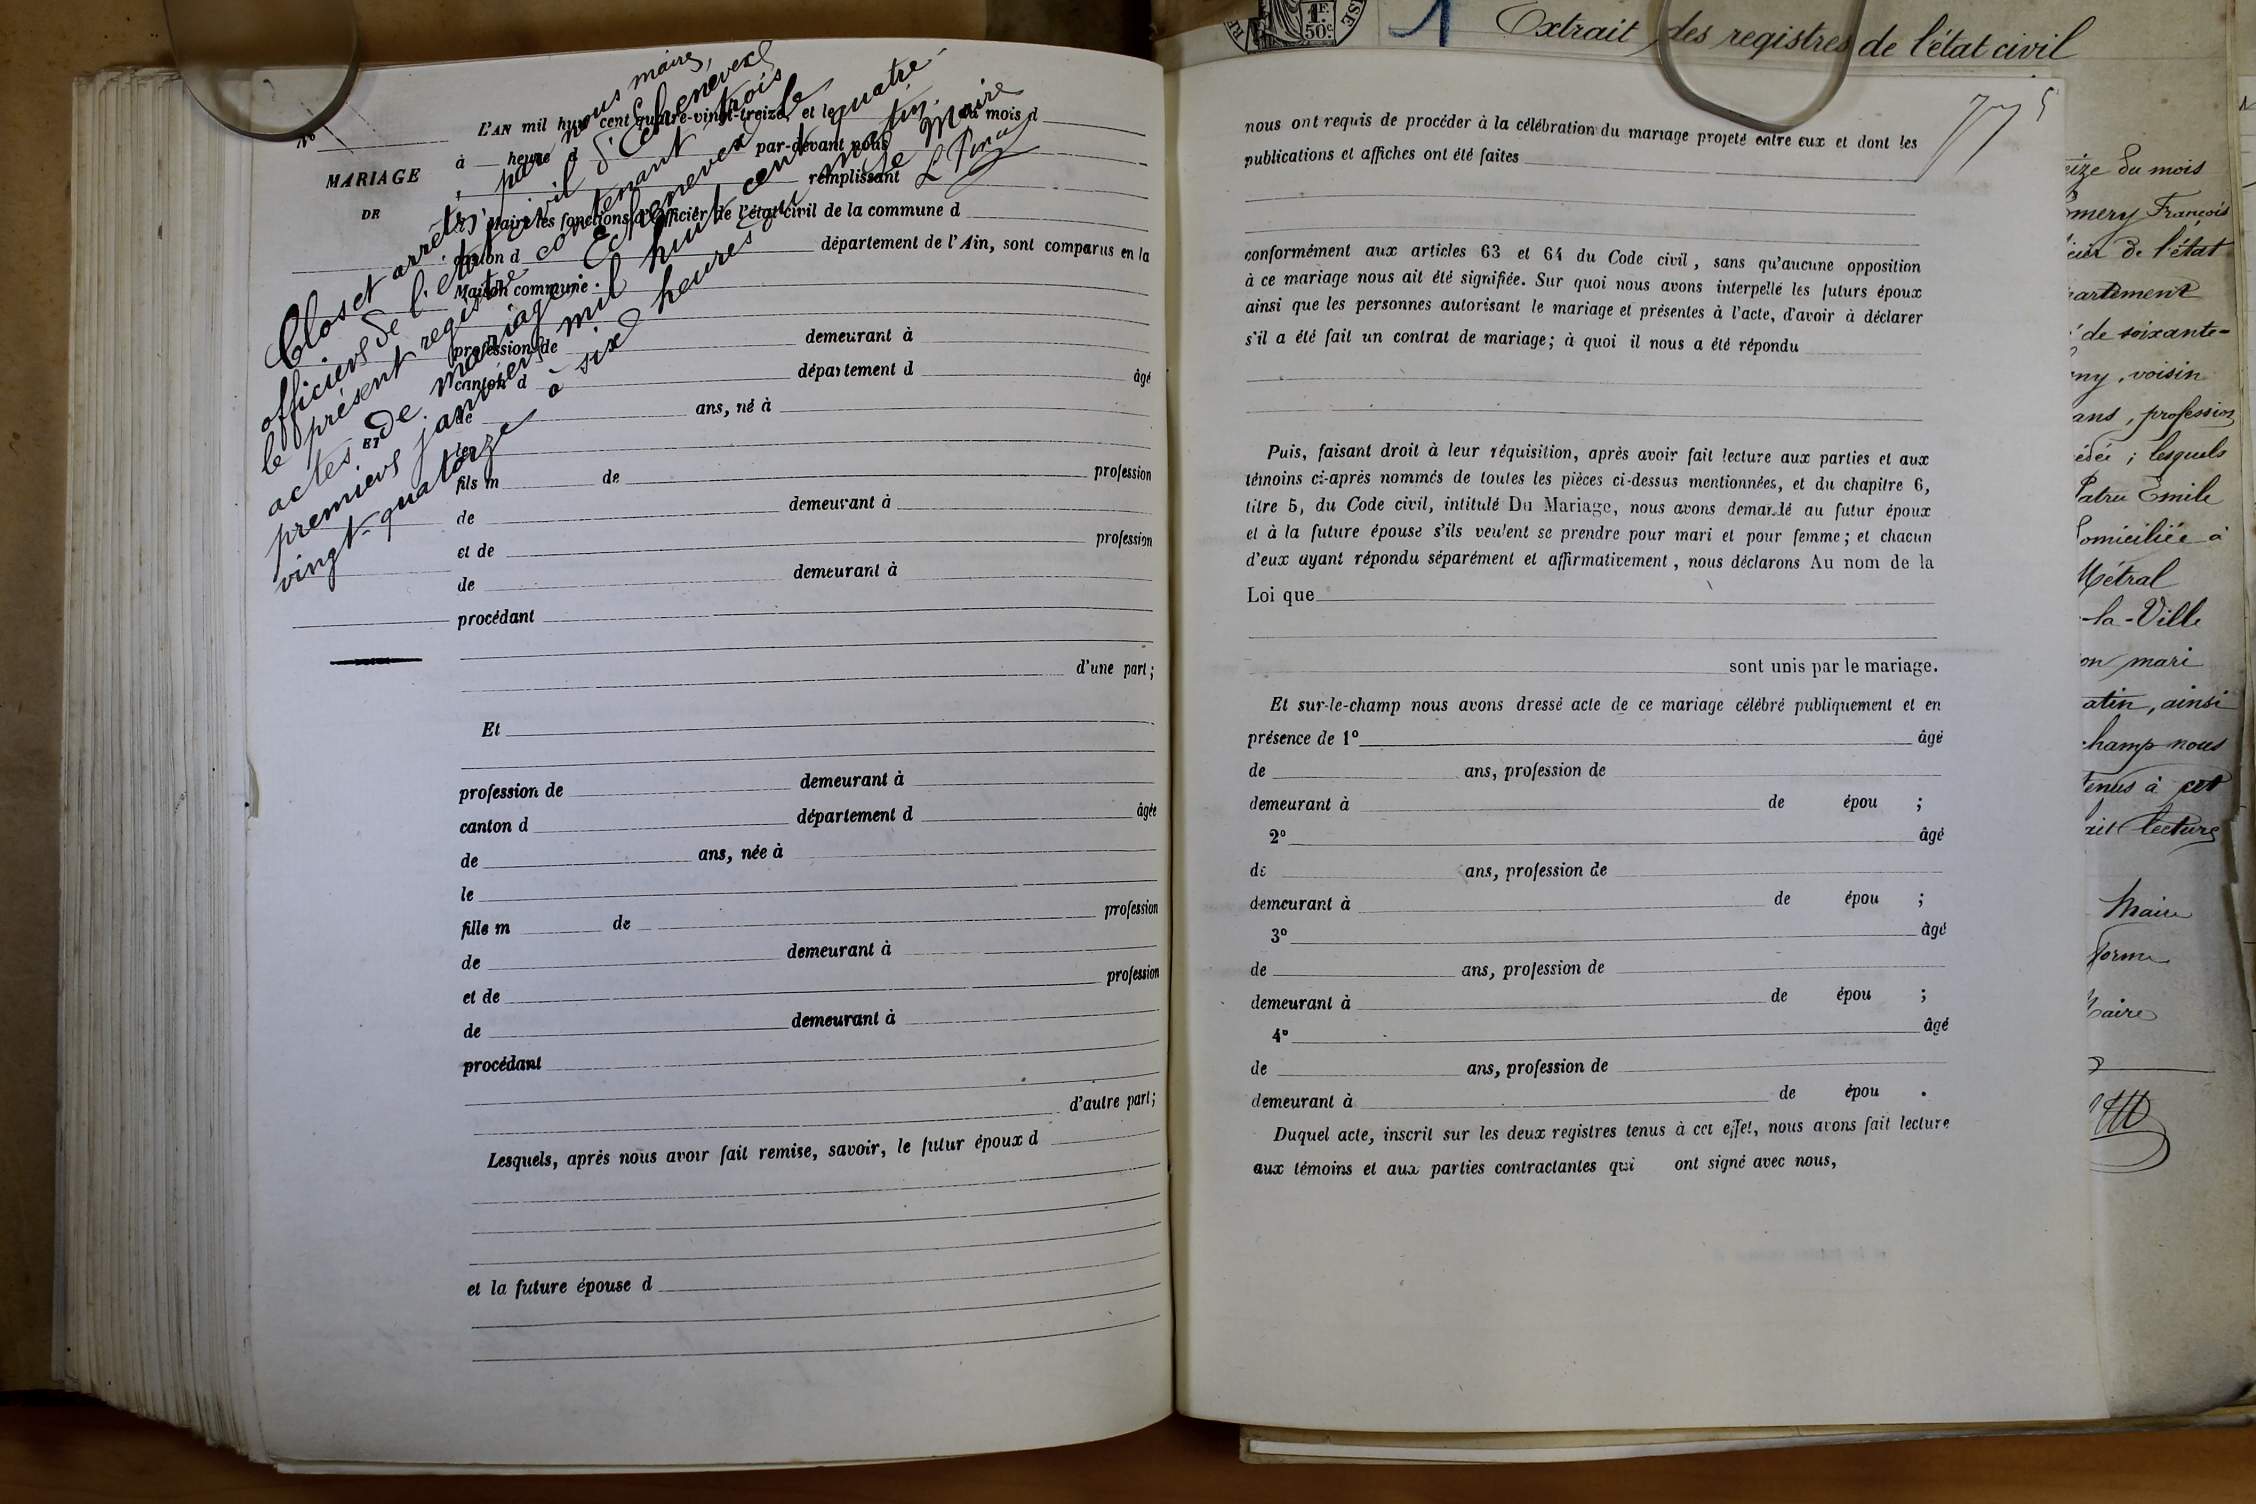 1
Extrait des registres de l'état civil
1F.
50c.
Clos et arrêté par nous maire,
officier de l'état civil d'Echenevex
le présent registre contenant trois
actes de mariage. Echenevex le
premier janvier mil huit cent quatre-
vingt-quatorze à six heures du matin.
Le Maire
No
MARIAGE
DE
ET
L'AN mil huit cent quatre-vingt-treize, et le du mois d
à heure d par-devant nous
remplissant
Maire les fonctions d'officier de l'état civil de la commune d
canton d département de l'Ain, sont comparus en la
Maison commune
profession de demeurant à
canton d département d âgé
de ans, né à
le
fils m de profession
de demeurant à
et de profession
de demeurant à
procédant
d'une part;
Et
profession de demeurant à
canton d département d âgée
de ans, née à
le
fille m de profession
de demeurant à
et de profession
de demeurant à
procédant
d'autre part;
Lesquels, après nous avoir fait remise, savoir, le futur époux d
et la future épouse d
nous ont requis de procéder à la célébration du mariage projeté entre eux et dont les
publications et affiches ont été faites
conformément aux articles 63 et 64 du Code civil, sans qu'aucune opposition
à ce mariage nous ait été signifiée. Sur quoi nous avons interpellé les futurs époux
ainsi que les personnes autorisant le mariage et présentes à l'acte, d'avoir à déclarer
s'il a été fait un contrat de mariage; à quoi il nous a été répondu
Puis, faisant droit à leur réquisition, après avoir fait lecture aux parties et aux
témoins ci-après nommés de toutes les pièces ci-dessus mentionnées, et du chapitre 6,
titre 5, du Code civil, intitulé Du Mariage, nous avons demandé au futur époux
et à la future épouse s'ils veulent se prendre pour mari et pour femme; et chacun
d'eux ayant répondu séparément et affirmativement, nous déclarons Au nom de la
Loi que
sont unis par le mariage.
Et sur-le-champ nous avons dressé acte de ce mariage célébré publiquement et en
présence de 1° âgé
de ans, profession de
demeurant à de épou ;
2° âgé
de ans, profession de
demeurant à de épou ;
3° âgé
de ans, profession de
demeurant à de épou ;
4° âgé
de ans, profession de
demeurant à de épou .
Duquel acte, inscrit sur les deux registres tenus à cet effet, nous avons fait lecture
aux témoins et aux parties contractantes qui ont signé avec nous,
eize du mois
omery François
icier de l'état
artement
de soixante-
ny, voisin
ans, profession
édée ; lesquels
Patru Emile
omiciliée à
Métral
-la-Ville
on mari
atin, ainsi
champ nous
tenus à cet
ait lecture
Maire
forme
Maire